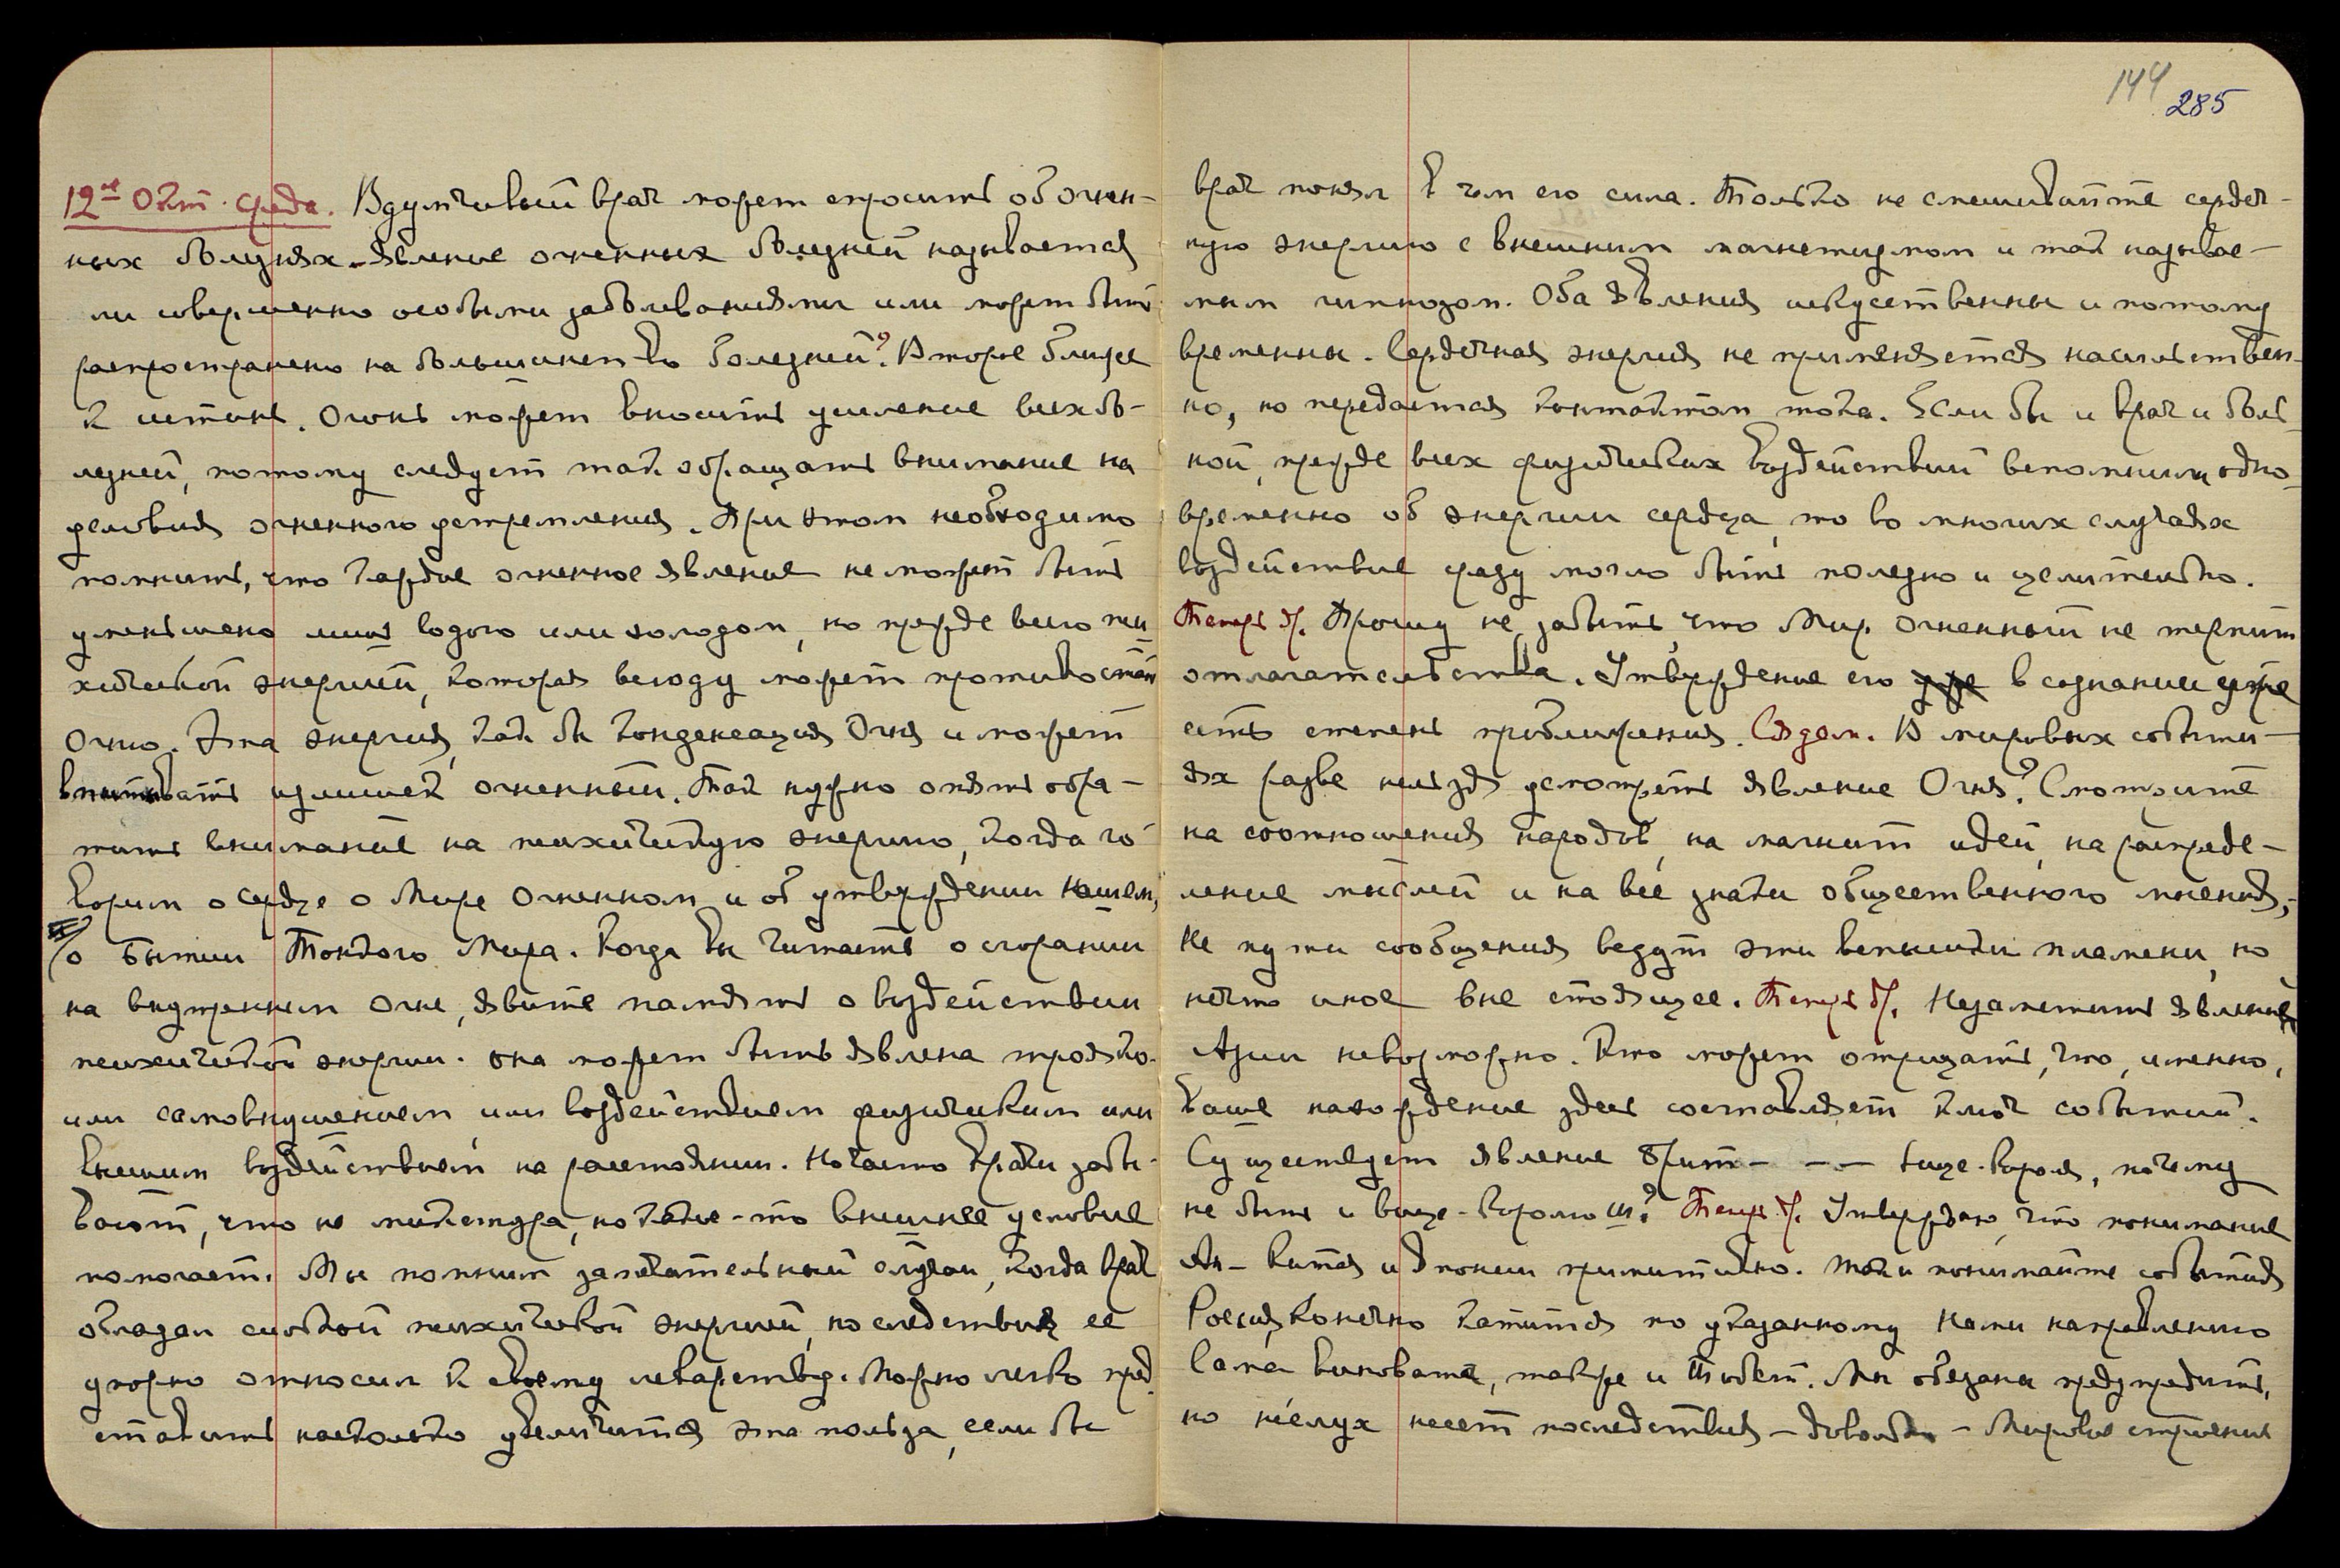 12ое Окт. среда. Вдумчивый врач может спросить об огнен-
ных болезнях. Явление огненных болезней называется
ли совершенно особыми заболеваниями или может быть
распространено на большинство болезней? Второе ближе
к истине. Огонь может вносить усиление всех бо-
лезней, потому следует так обращать внимание на
условия огненного устремления. При этом необходимо
помнить, что каждое огненное явление не может быть
уменьшено лишь водою или холодом, но прежде всего пси
хической энергией, которая всюду может противостать
Огню. Эта энергия, как бы конденсация Огня и может
впитывать излишек огненный. Так нужно опять обра-
тить внимание на психическую энергию, когда го-
ворим о сердце о Мире Огненном и об утверждении нашем,
о бытии Тонкого Мира. Когда вы читаете о сгорании
на внутреннем огне, явите память о воздействии
психической энергии. она может быть явлена трояко.
или самовнушением, или воздействием физическим или
высшим воздействием на расстоянии. Но часто врачи забы-
вают, что не микстура, но какие-то внешнее условие
помогает. Мы помним замечательный случай, когда врач
обладал сильной психической энергией, но следствия ее
упорно относил к своему лекарству. Можно легко пред-
ставить насколько увеличится эта польза, если бы
144
285
врач понял в чем его сила. Только не смешивайте сердеч-
ную энергию с внешним магнетизмом и так называе-
мым гипнозом. Оба явления искусственны и потому
временны. Сердечная энергия не применяется насильствен-
но, но передается контактом тока. Если бы и врач и боль-
ной, прежде всех физических воздействий вспомнили одно-
временно об энергии сердца, то во многих случаях
воздействие сразу могло быть полезно и целительно.
Теперь др. Прошу не забыть, что Мир Огненный не терпит
отлагательства. Утверждение его в сознании уже
есть степень приближения. В мировых событи-
ях разве нельзя усмотреть явление Огня? Смотрите
на соотношения народов, на магнит идей, на распреде-
ление мыслей и на все знаки общественного мнения,-
Не пути сообщения ведут эти вспышки пламени, но
нечто иное вне стоящее. Теперь др. Незаметить явления
Азии невозможно. Кто может отрицать, что, именно,
Ваше нахождение здесь составляет ключ событий.
Существует явление Брит- - -- вице-короля, почему
не быть и вице-королю Ш? Теперь др. Утверждаю, что понимание
Ан- Китая и Японии примитивно. Так и понимайте события
Россия, конечно катится по указанному нами направлению
Сама виновата, также и Тибет. Мы обязаны предупредить,
но неслух несет последствия - довольно - Мировое строение